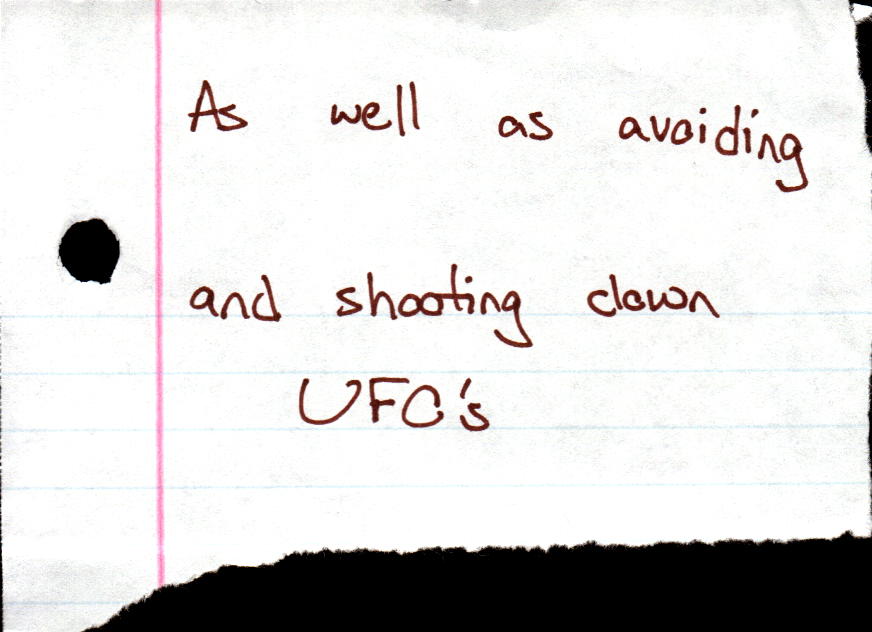 As well as avoiding
and shooting down
UFO's